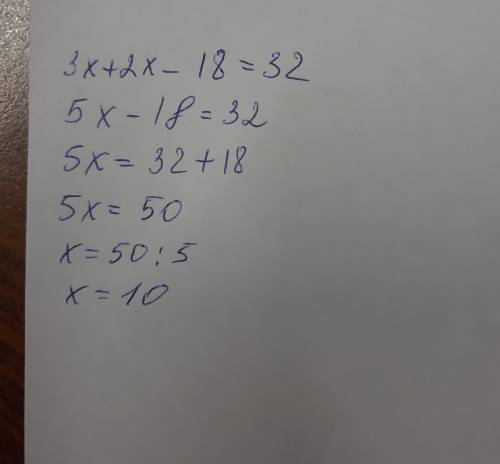 3x+2x-18=32
5x-18=32
5x=32+18
5x=50
x=50:5
x=10